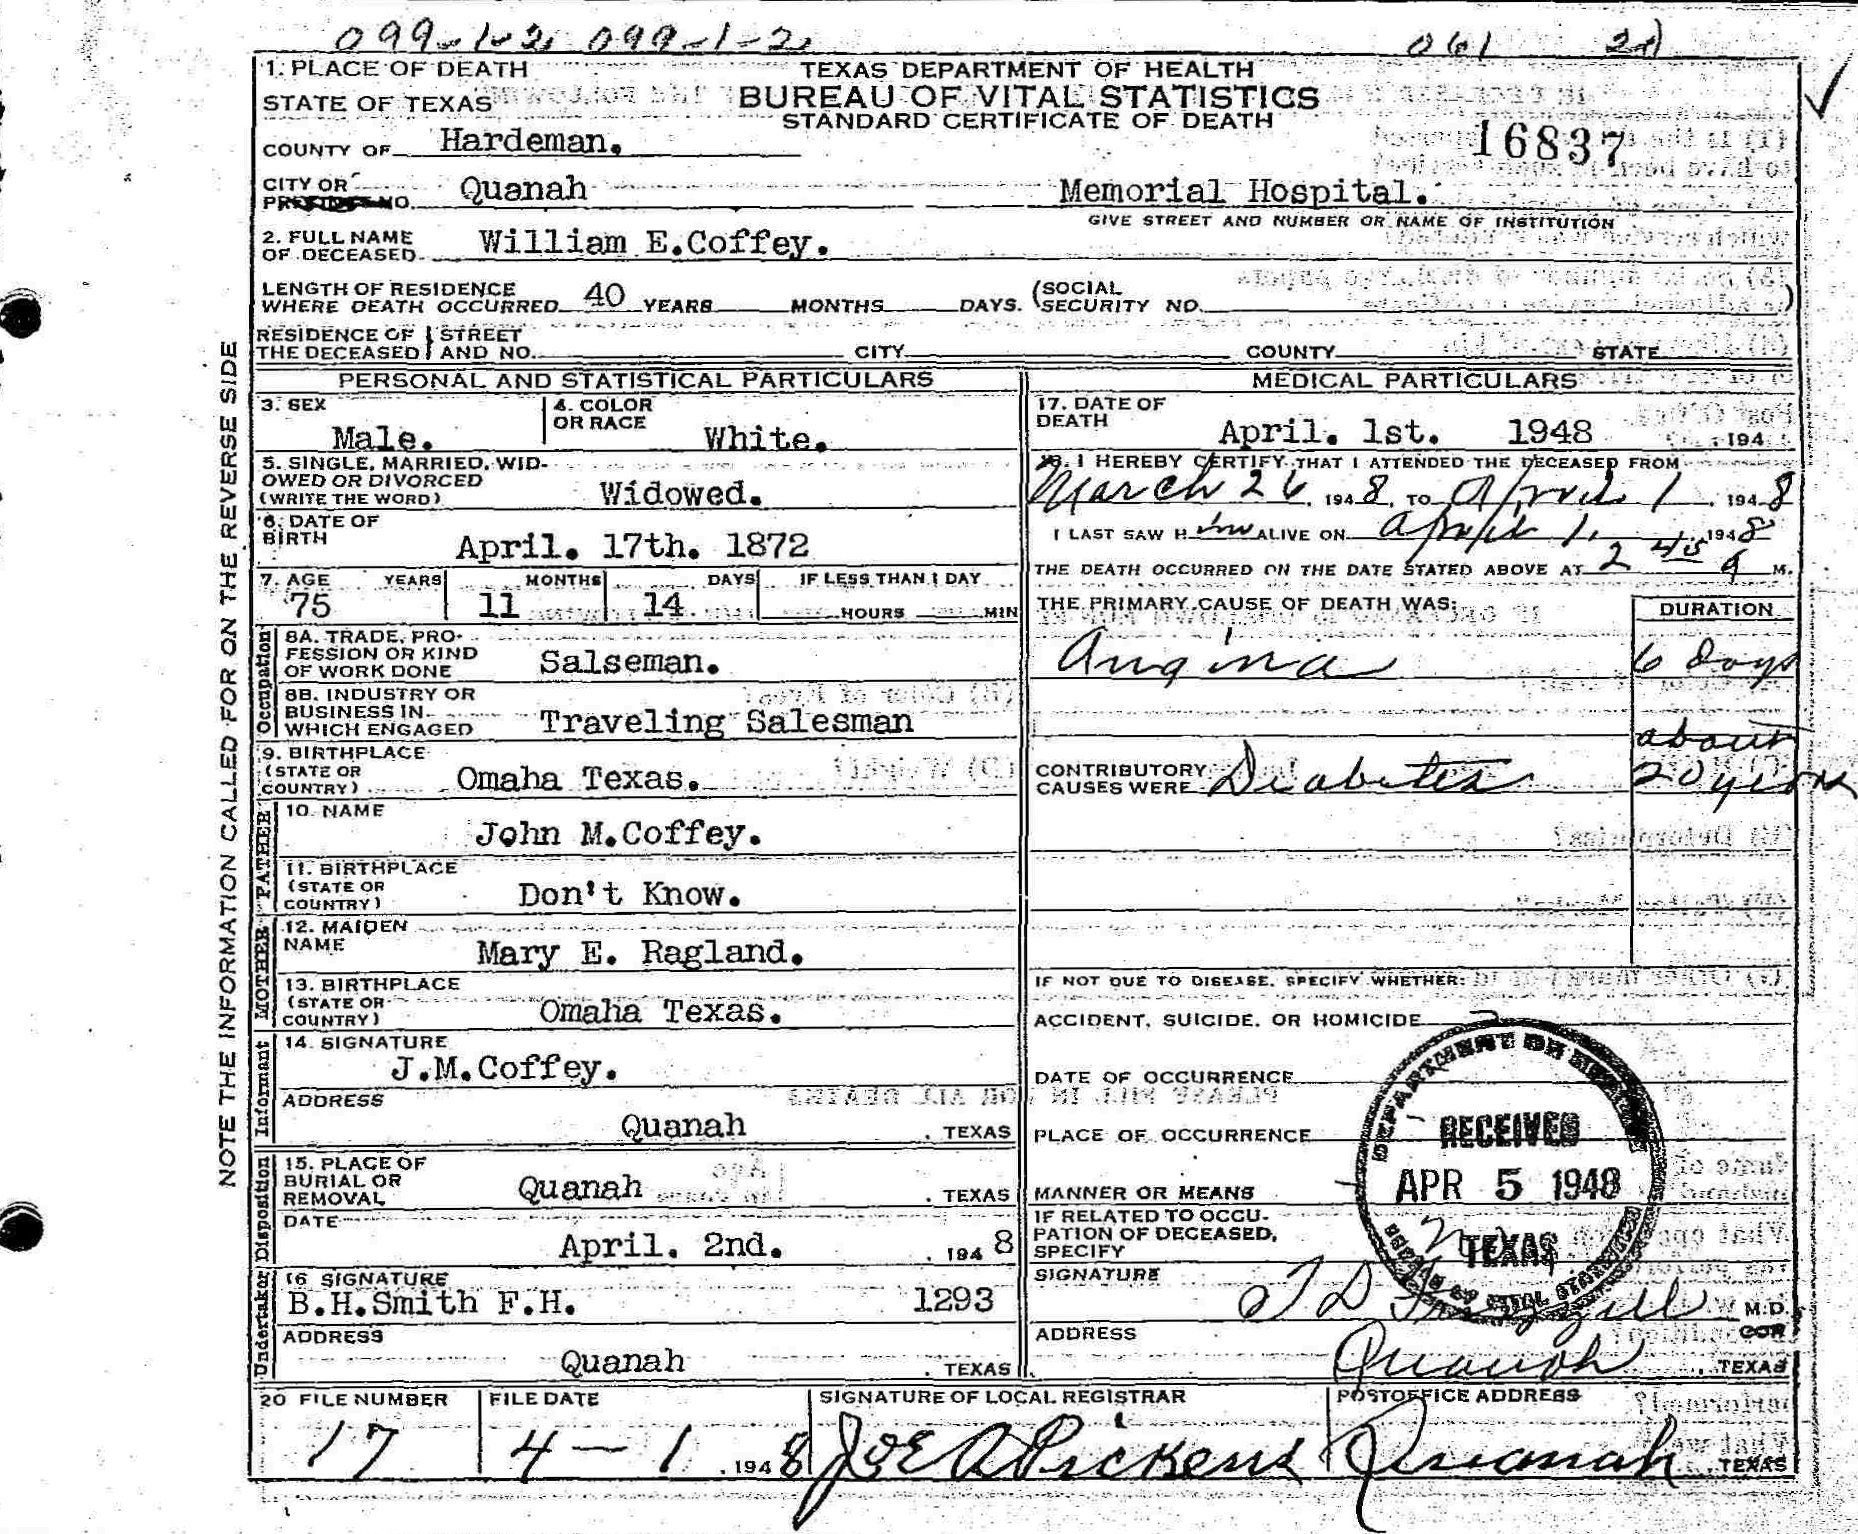 099-1-2 099-1-2 061 20
1. PLACE OF DEATH TEXAS DEPARTMENT OF HEALTH
STATE OF TEXAS BUREAU OF VITAL STATISTICS
STANDARD CERTIFICATE OF DEATH
COUNTY OF Hardeman. 16837
CITY OR
PRECINCT NO. Quanah Memorial Hospital.
GIVE STREET AND NUMBER OR NAME OF INSTITUTION
2. FULL NAME
OF DECEASED William E.Coffey.
LENGTH OF RESIDENCE
WHERE DEATH OCCURRED 40 YEARS MONTHS DAYS. (SOCIAL SECURITY NO. )
RESIDENCE OF THE DECEASED STREET AND NO. CITY COUNTY STATE
NOTE THE INFORMATION CALLED FOR ON THE REVERSE SIDE
PERSONAL AND STATISTICAL PARTICULARS
3. SEX Male. 4. COLOR OR RACE White.
5. SINGLE, MARRIED, WID-
OWED OR DIVORCED
(WRITE THE WORD) Widowed.
6. DATE OF
BIRTH April. 17th. 1872
7. AGE YEARS MONTHS DAYS IF LESS THAN 1 DAY
75 11 14 HOURS MIN
Occupation
8A. TRADE, PRO-
FESSION OR KIND
OF WORK DONE Salseman.
8B. INDUSTRY OR
BUSINESS IN
WHICH ENGAGED Traveling Salesman
9. BIRTHPLACE
(STATE OR
COUNTRY) Omaha Texas.
FATHER
10. NAME
John M.Coffey.
11. BIRTHPLACE
(STATE OR
COUNTRY) Don't Know.
MOTHER
12. MAIDEN
NAME Mary E. Ragland.
13. BIRTHPLACE
(STATE OR
COUNTRY) Omaha Texas.
Informant
14. SIGNATURE
J.M.Coffey.
ADDRESS
Quanah , TEXAS
Disposition
15. PLACE OF
BURIAL OR
REMOVAL Quanah , TEXAS
DATE
April. 2nd. , 194 8
Undertaker
16 SIGNATURE
B.H.Smith F.H. 1293
ADDRESS
Quanah , TEXAS
MEDICAL PARTICULARS
17. DATE OF
DEATH April. 1st. 1948 , 194
18. I HEREBY CERTIFY THAT I ATTENDED THE DECEASED FROM
March 26, 1948, TO April 1, 1948
I LAST SAW H im ALIVE ON April 1, 1948
THE DEATH OCCURRED ON THE DATE STATED ABOVE AT 2 45 a M.
THE PRIMARY CAUSE OF DEATH WAS: DURATION
Angina 6 days
about
CONTRIBUTORY
CAUSES WERE Diabetes 20 years
IF NOT DUE TO DISEASE, SPECIFY WHETHER:
ACCIDENT, SUICIDE, OR HOMICIDE
DATE OF OCCURRENCE
PLACE OF OCCURRENCE
MANNER OR MEANS
IF RELATED TO OCCU-
PATION OF DECEASED,
SPECIFY
DEPARTMENT OF HEALTH
RECEIVED
APR 5 1948
TEXAS
BUREAU OF VITAL STATISTICS
SIGNATURE T D Frizzell M.D.
ADDRESS
Quanah , TEXAS
20 FILE NUMBER FILE DATE SIGNATURE OF LOCAL REGISTRAR POSTOFFICE ADDRESS
17 4-1, 1948 Joe A Pickens Quanah, TEXAS